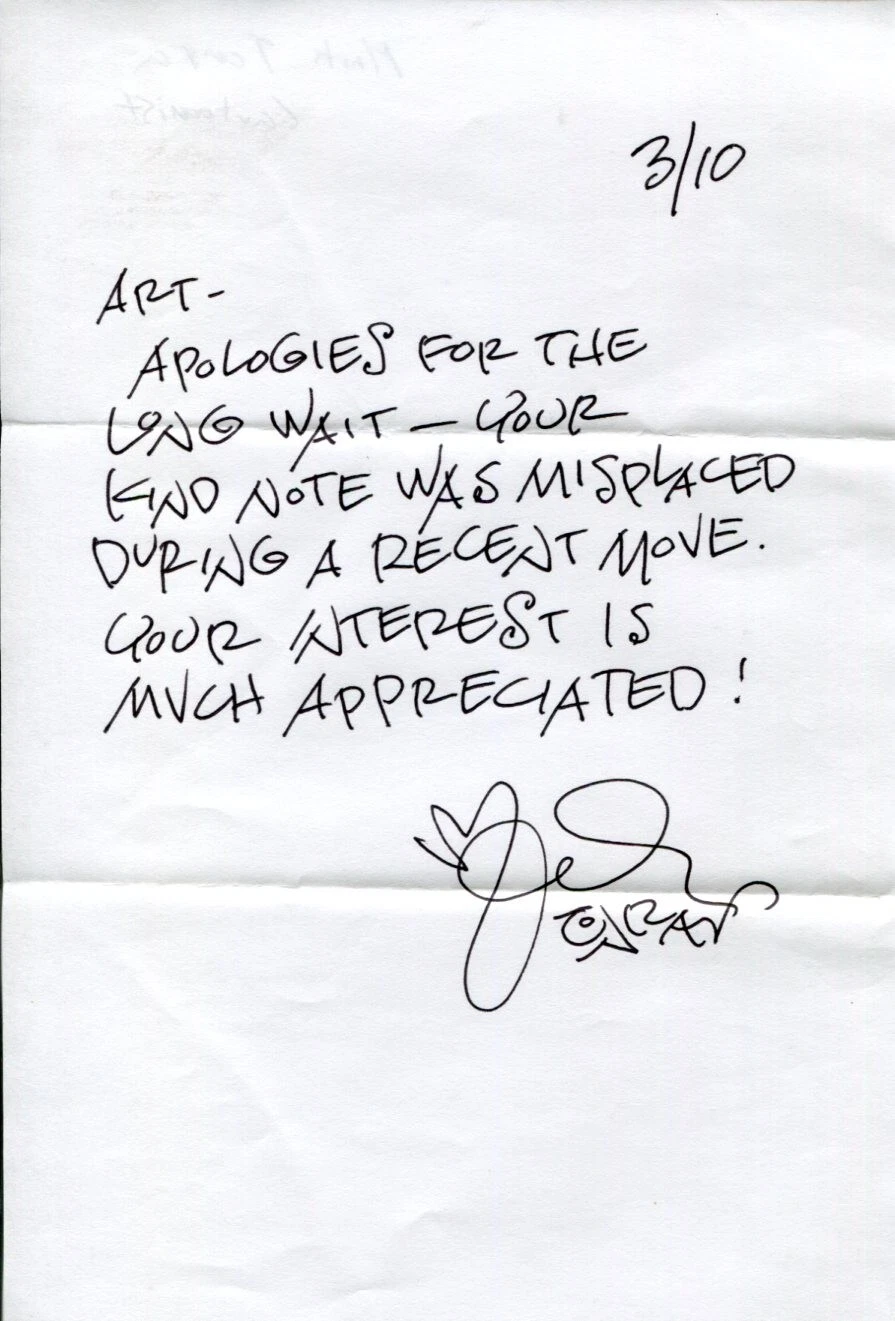 3/10
ART-
APOLOGIES FOR THE
LONG WAIT — YOUR
KIND NOTE WAS MISPLACED
DURING A RECENT MOVE.
YOUR INTEREST IS
MUCH APPRECIATED!
TONRA